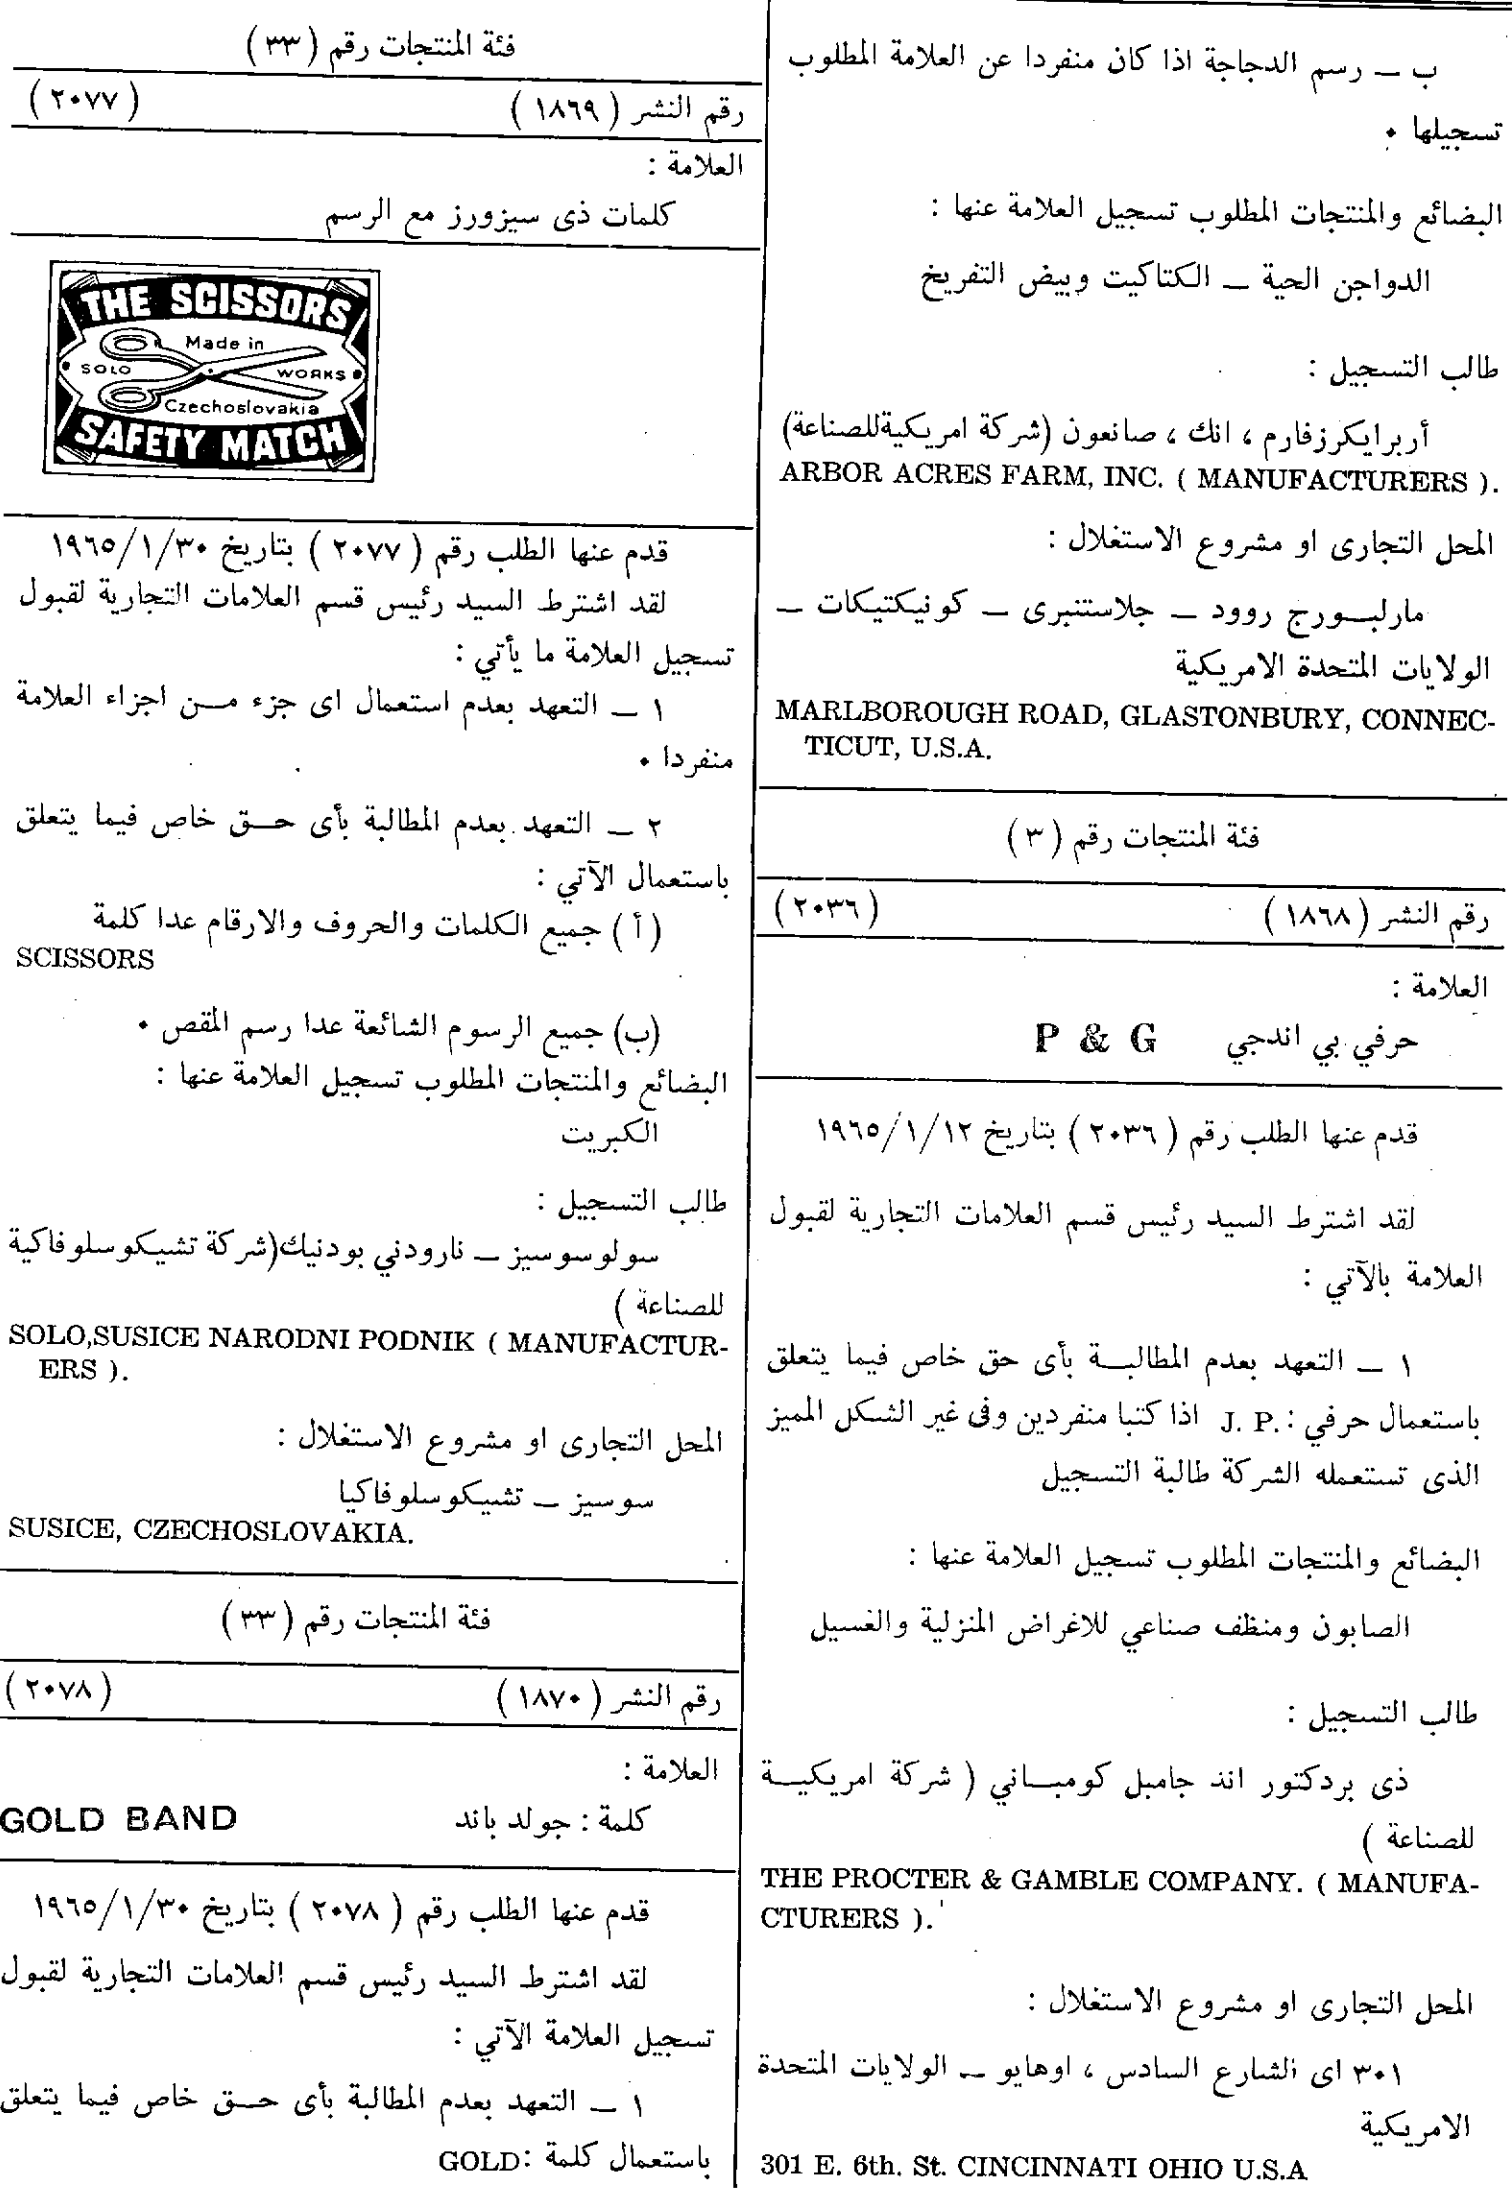 ب ــ رسم الدجاجة اذا كان منفردا عن العلامة المطلوب
تسجيلها ٠
البضائع والمنتجات المطلوب تسجيل العلامة عنها :
الدواجن الحية ــ الكتاكيت وبيض التفريخ
طالب التسجيل :
أربرايكرزفارم ، انك ، صانعون (شركة امريكيةللصناعة)
ARBOR ACRES FARM, INC. ( MANUFACTURERS ).
المحل التجارى او مشروع الاستغلال :
مارلبـورج روود ــ جلاستنبرى ــ كونيكتيكات ــ
الولايات المتحدة الامريكية
MARLBOROUGH ROAD, GLASTONBURY, CONNEC-
TICUT, U.S.A.
فئة المنتجات رقم ( ٣ )
رقم النشر ( ١٨٦٨ ) ( ٢٠٣٦ )
العلامة :
حرفي بي اندجي P & G
قدم عنها الطلب رقم ( ٢٠٣٦ ) بتاريخ ١٩٦٥/١/١٢
لقد اشترط السيد رئيس قسم العلامات التجارية لقبول
العلامة بالآتي :
١ ــ التعهد بعدم المطالبـة بأى حق خاص فيما يتعلق
باستعمال حرفي : J. P. اذا كتبا منفردين وفى غير الشكل المميز
الذى تستعمله الشركة طالبة التسجيل
البضائع والمنتجات المطلوب تسجيل العلامة عنها :
الصابون ومنظف صناعي للاغراض المنزلية والغسيل
طالب التسجيل :
ذى بردكتور اند جامبل كومبـاني ( شركة امريكيـة
للصناعة )
THE PROCTER & GAMBLE COMPANY. ( MANUFA-
CTURERS ).
المحل التجارى او مشروع الاستغلال :
٣٠١ اى الشارع السادس ، اوهايو ــ الولايات المتحدة
الامريكية
301 E. 6th. St. CINCINNATI OHIO U.S.A
فئة المنتجات رقم ( ٣٣ )
رقم النشر ( ١٨٦٩ ) ( ٢٠٧٧ )
العلامة :
كلمات ذى سيزورز مع الرسم
THE SCISSORS
Made in
SOLO WORKS
Czechoslovakia
SAFETY MATCH
قدم عنها الطلب رقم ( ٢٠٧٧ ) بتاريخ ١٩٦٥/١/٣٠
لقد اشترط السيد رئيس قسم العلامات التجارية لقبول
تسجيل العلامة ما يأتي :
١ ــ التعهد بعدم استعمال اى جزء مـن اجزاء العلامة
منفردا ٠
٢ ــ التعهد بعدم المطالبة بأى حـق خاص فيما يتعلق
باستعمال الآتي :
( أ ) جميع الكلمات والحروف والارقام عدا كلمة
SCISSORS
(ب) جميع الرسوم الشائعة عدا رسم المقص ٠
البضائع والمنتجات المطلوب تسجيل العلامة عنها :
الكبريت
طالب التسجيل :
سولوسوسيز ــ نارودني بودنيك(شركة تشيكوسلوفاكية
للصناعة )
SOLO,SUSICE NARODNI PODNIK ( MANUFACTUR-
ERS ).
المحل التجارى او مشروع الاستغلال :
سوسيز ــ تشيكوسلوفاكيا
SUSICE, CZECHOSLOVAKIA.
فئة المنتجات رقم ( ٣٣ )
رقم النشر ( ١٨٧٠ ) ( ٢٠٧٨ )
العلامة :
كلمة : جولد باند GOLD BAND
قدم عنها الطلب رقم ( ٢٠٧٨ ) بتاريخ ١٩٦٥/١/٣٠
لقد اشترط السيد رئيس قسم العلامات التجارية لقبول
تسجيل العلامة الآتي :
١ ــ التعهد بعدم المطالبة بأى حـق خاص فيما يتعلق
باستعمال كلمة :GOLD